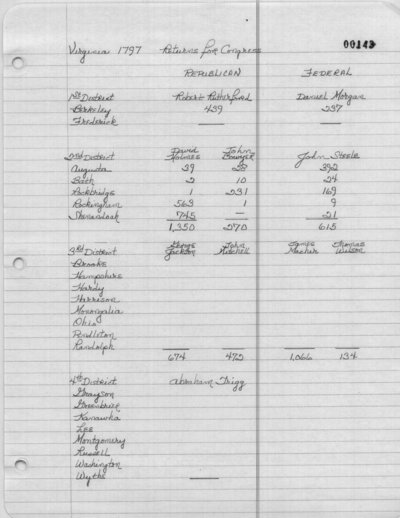 Virginia 1797 Returns for Congress 00143
REPUBLICAN FEDERAL
1st District Robert Rutherford Daniel Morgan
Berkeley 439 237
Frederick
2nd District David Holmes John Bowyer John Steele
Augusta 39 28 392
Bath 2 10 24
Rockbridge 1 231 169
Rockingham 563 1 9
Shenandoah 745 — 21
1,350 270 615
3rd District George Jackson John Mitchell James Machir Thomas Wilson
Brooke
Hampshire
Hardy
Harrison
Monongalia
Ohio
Pendleton
Randolph
674 472 1,066 134
4th District Abraham Trigg
Grayson
Greenbrier
Kanawha
Lee
Montgomery
Russell
Washington
Wythe